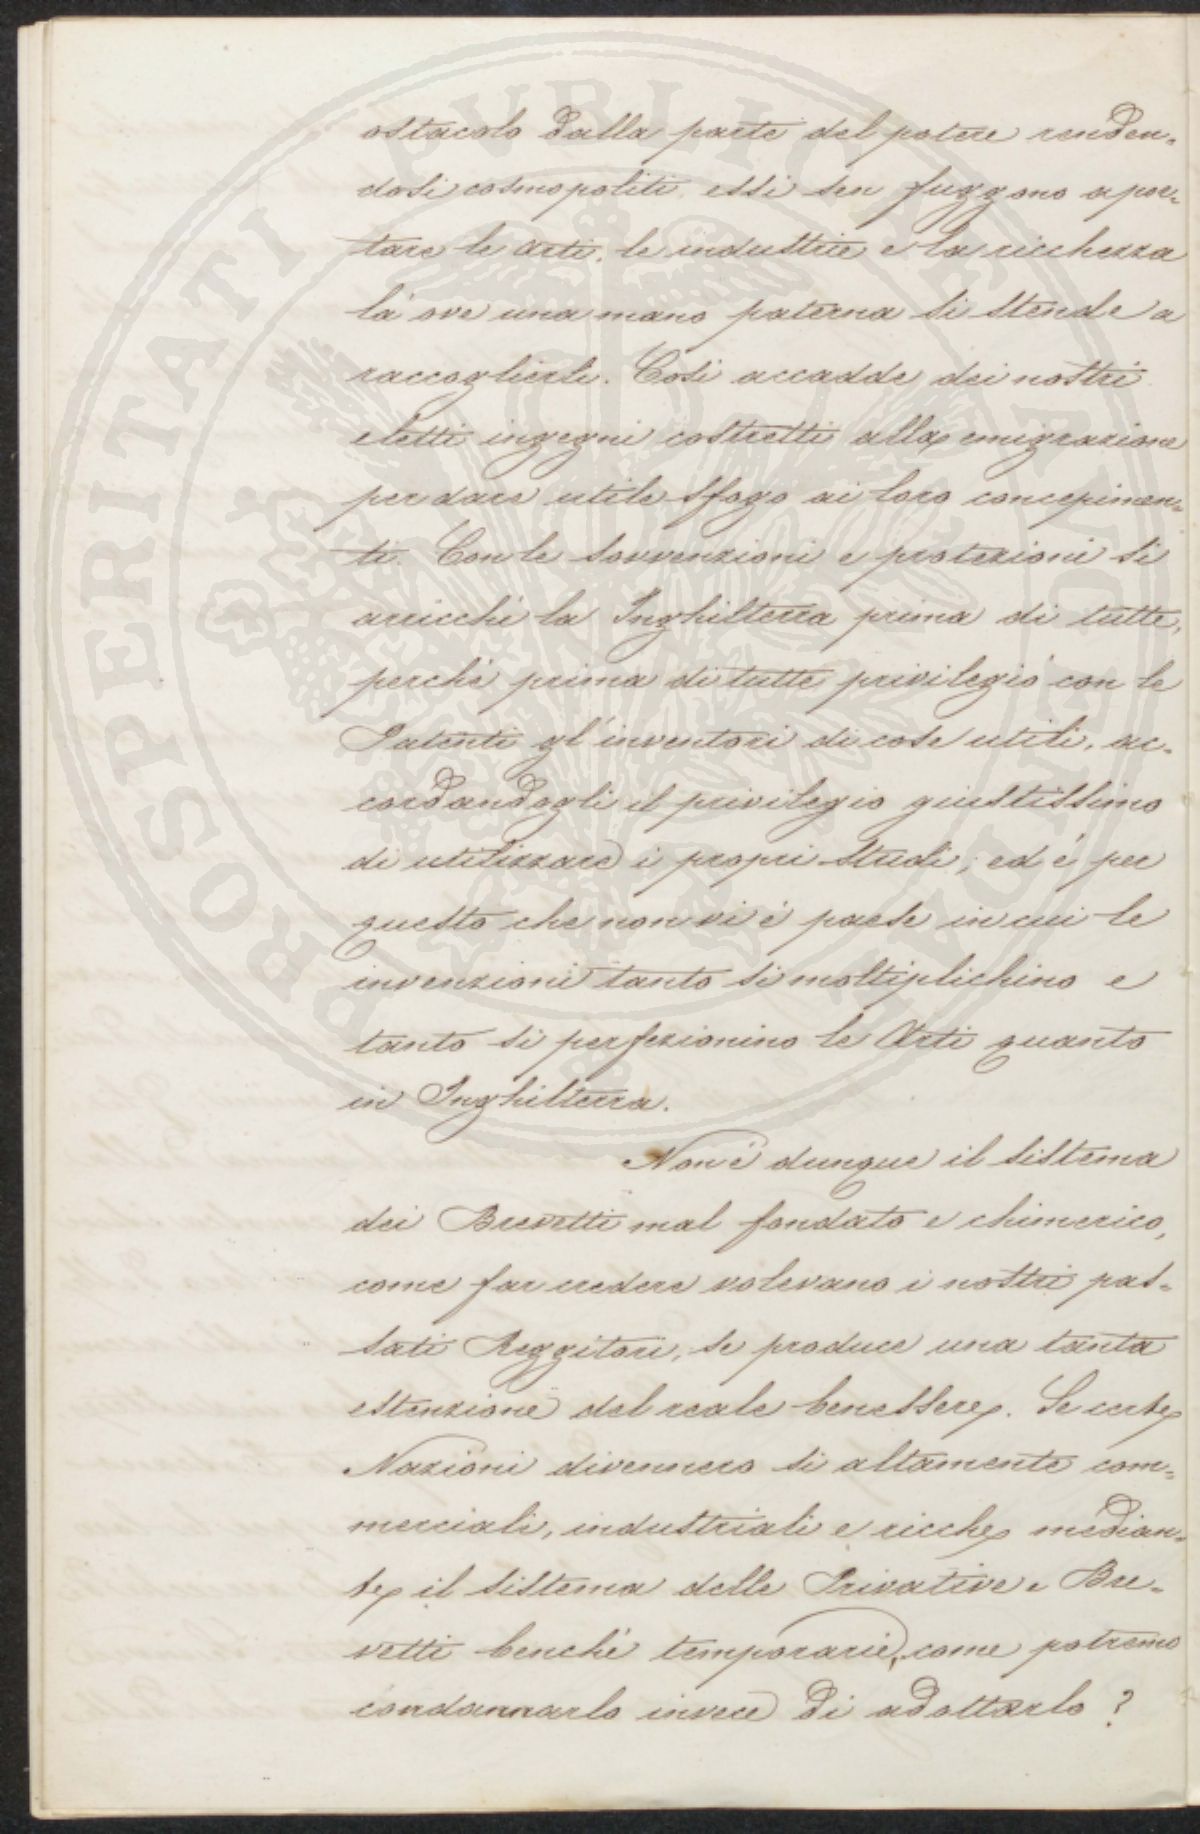 ostacolo dalla parte del potere renden=
dosi cosmopoliti essi sen fuggono a por=
tare le arti, le industrie e la ricchezza
là ove una mano paterna si stende a
raccoglierli. Così accadde dei nostri
eletti ingegni costretti alla emigrazione
per dare utile sfogo ai loro concepimen=
ti. Con le sovvenzioni e protezioni si
arricchì la Inghilterra prima di tutte,
perchè prima di tutte privilegiò con le
Patenti gl'inventori di cose utili, ac=
cordandogli il privilegio giustissimo
di utilizzare i propri studi; ed è per
questo che non vi è paese in cui le
invenzioni tanto si moltiplichino e
tanto si perfezionino le Arti quanto
in Inghilterra.
Non è dunque il sistema
dei Brevetti mal fondato e chimerico,
come far credere volevano i nostri pas=
sati Reggitori, se produce una tanta
estenzione del reale benessere. Se certe
Nazioni divennero sì altamente com=
merciali, industriali e ricche median=
te il sistema delle Privative e Bre=
vetti benchè temporarie, come potremo
condannarlo invece di adottarlo?
PROSPERITATI PVBLICAE AVGENDAE